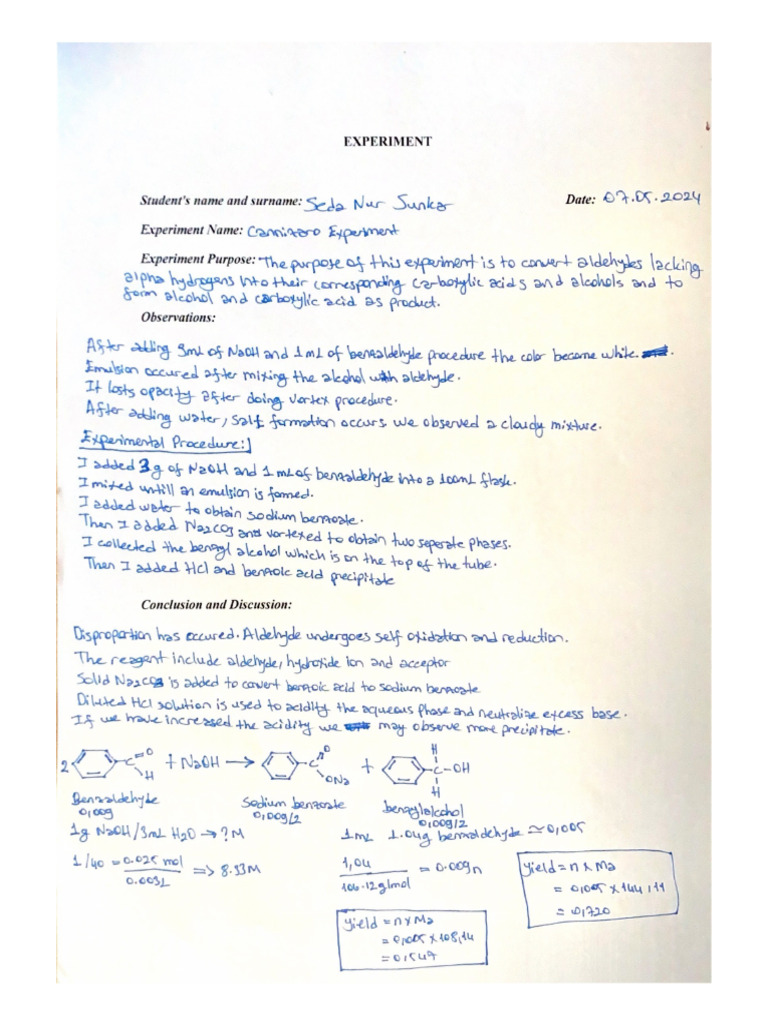 EXPERIMENT
Student's name and surname: Seda Nur Sunkar Date: 07.05.2024
Experiment Name: Cannizaro Experiment
Experiment Purpose: The purpose of this experiment is to convert aldehydes lacking
alpha hydrogens into their corresponding carboxylic acids and alcohols and to
form alcohol and carboxylic acid as product.
Observations:
After adding 3mL of NaOH and 1mL of benzaldehyde procedure the color become white.
Emulsion occured after mixing the alcohol with aldehyde.
It losts opacity after doing vortex procedure.
After adding water, salt formation occurs we observed a cloudy mixture.
Experimental Procedure:
I added 3g of NaOH and 1mL of benzaldehyde into a 100mL flask.
I mixed untill an emulsion is formed.
I added water to obtain sodium benzoate.
Then I added Na2CO3 and vortexed to obtain two seperate phases.
I collected the benzyl alcohol which is on the top of the tube.
Then I added HCl and benzoic acid precipitate
Conclusion and Discussion:
Disproportion has occured. Aldehyde undergoes self oxidation and reduction.
The reagent include aldehyde, hydroxide ion and acceptor
Solid Na2CO3 is added to convert benzoic acid to sodium benzoate
Diluted HCl solution is used to acidity the aqueous phase and neutralize excess base.
If we have increased the acidity we may observe more precipitate.
2 C =O H + NaOH → C O ONa + H C-OH H
Benzaldehyde Sodium benzoate benzylalcohol
0,009 0,009/2 0,009/2
1g NaOH/3mL H2O → ? M 1mL 1.04g benzaldehyde ≃ 0,005
1/40 = 0.025 mol / 0.003L => 8.33M
1,04 / 106.12g/mol = 0.009n
yield = n x Ma
= 0,005 x 144,11
= 0,720
yield = n x Ma
= 0,005 x 108,14
= 0,547